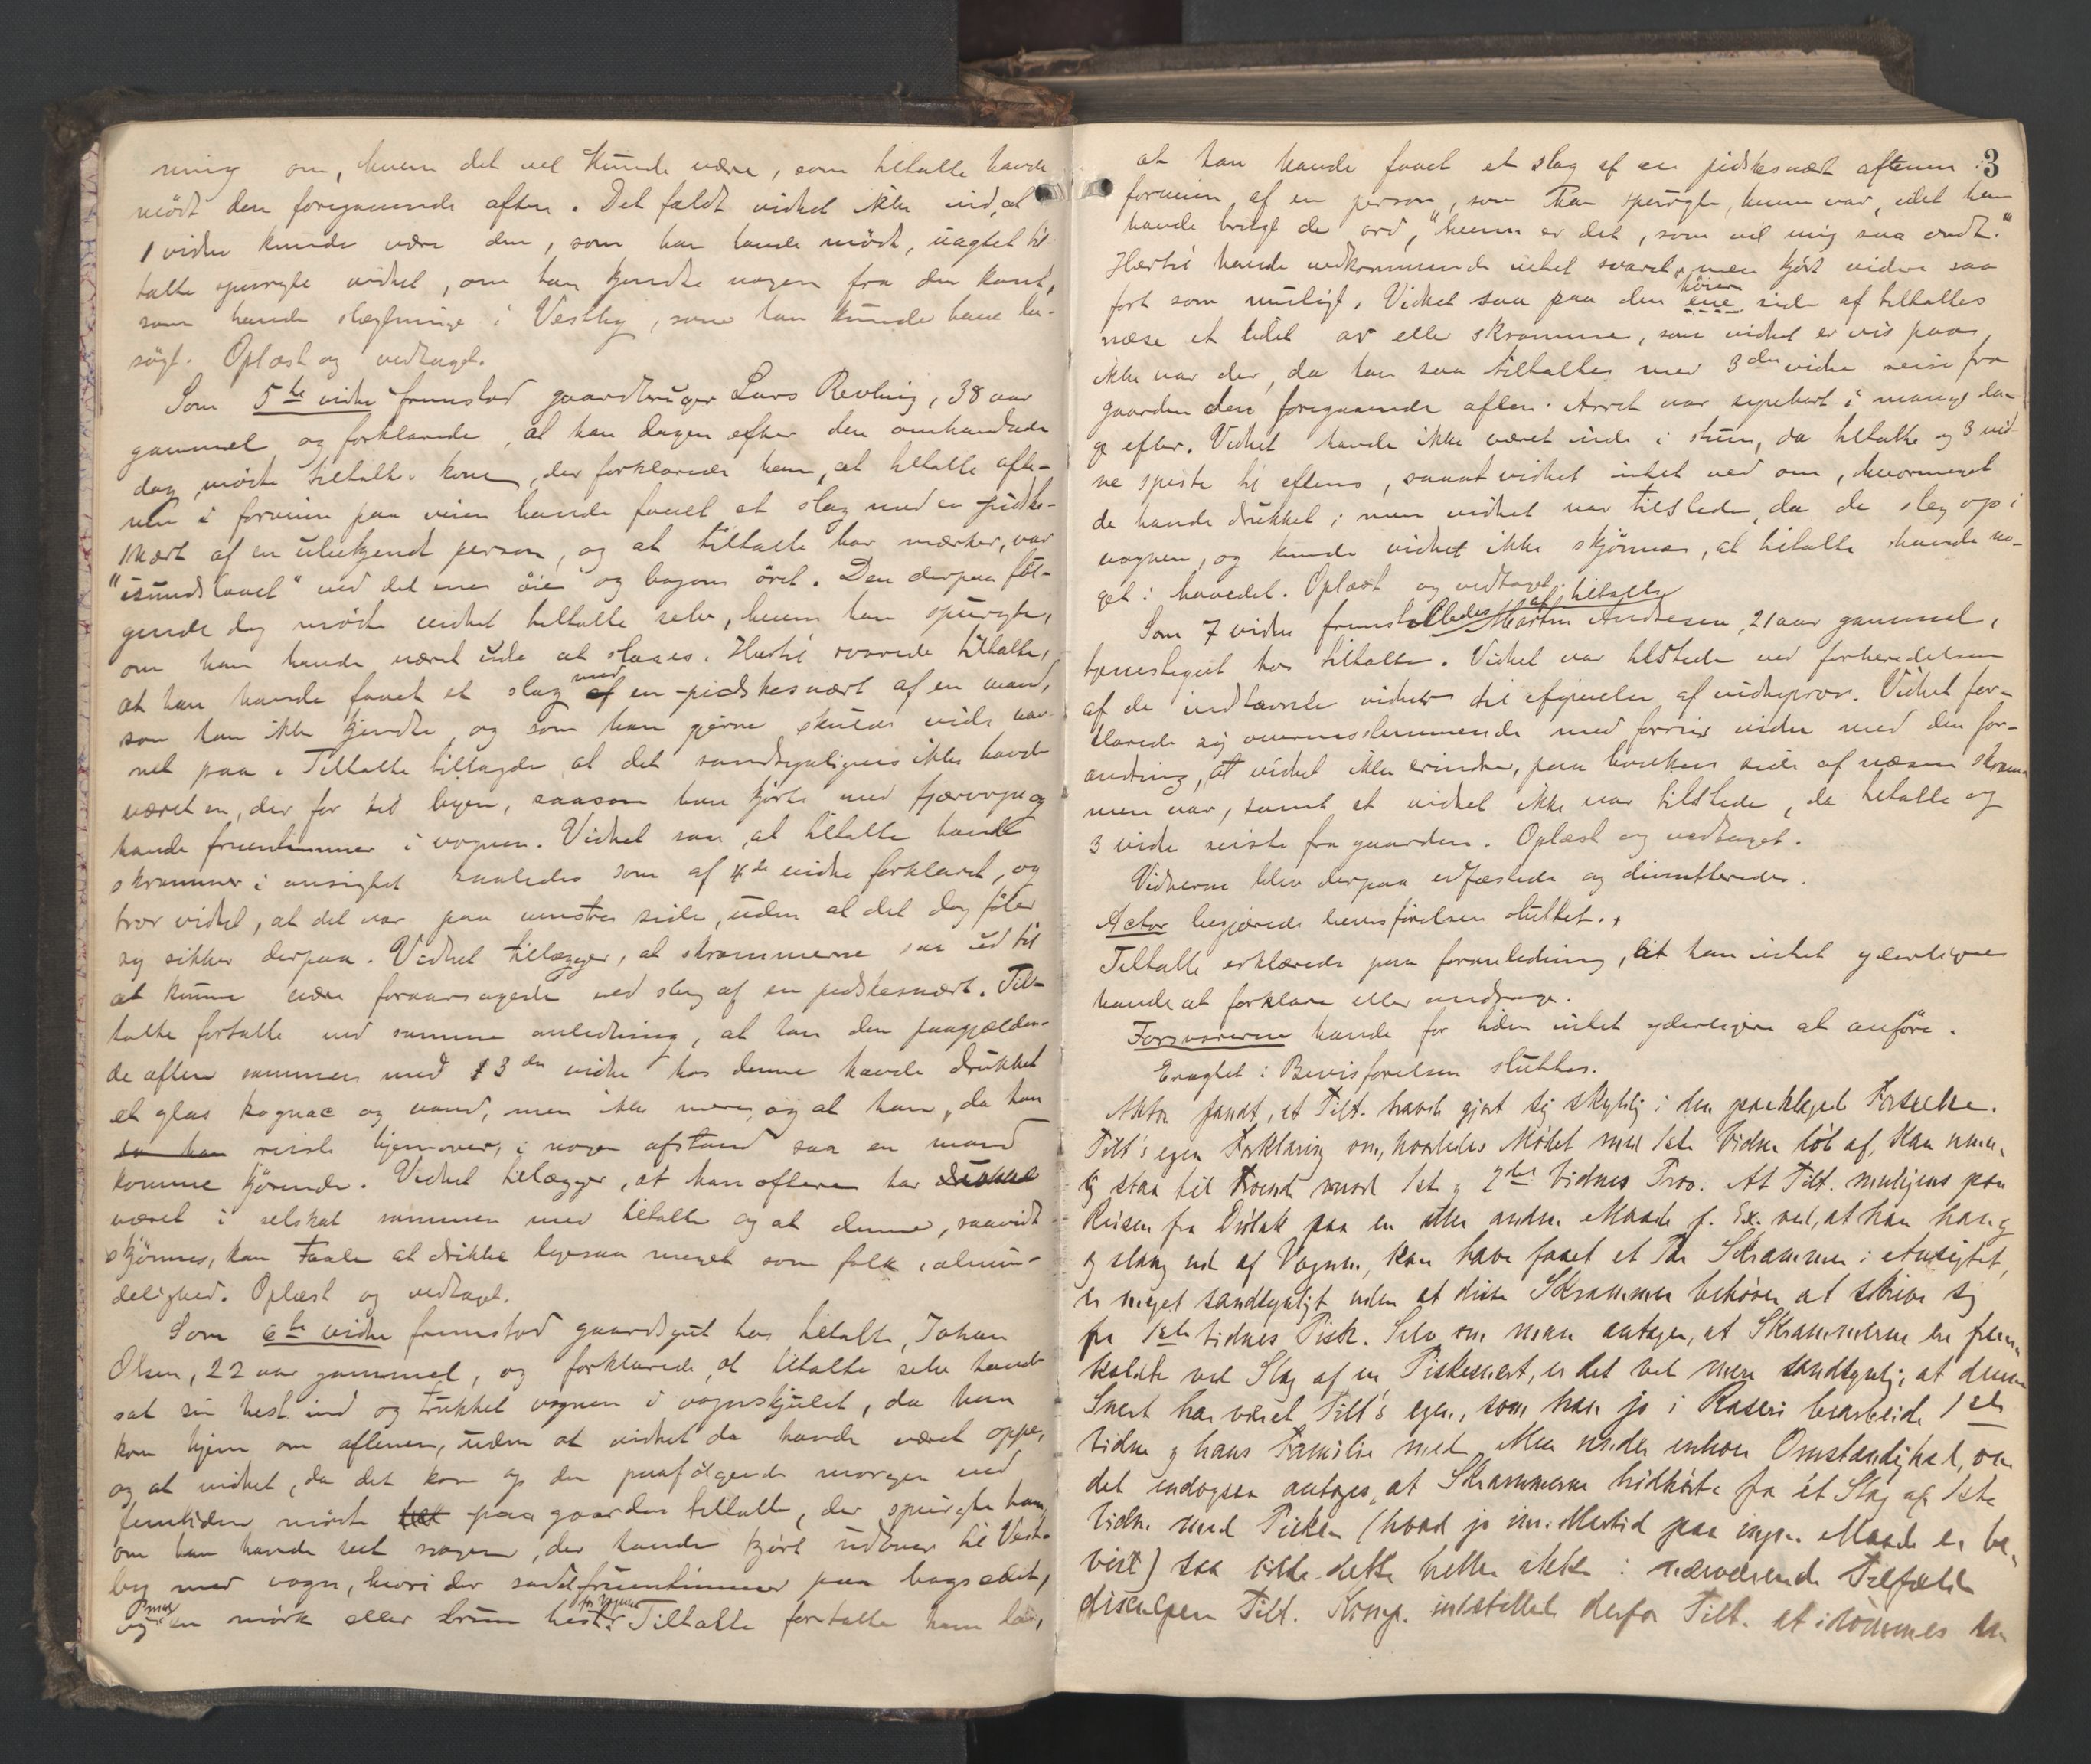 ning om, hvem det vel kunde være, som tiltalte havde
mødt den foregaaende aften. Det faldt vidnet ikke ind, at
1 vidne kunde være den, som han havde mødt, uagtet til-
talte spurgte vidnet, om han kjendte nogen fra den kant,
som havde slægtninge i Vestby, som han kunde have be-
søgt. Oplæst og vedtaget.
Som 5te vidne fremstod gaardbruger Lars Revling, 38 aar
gammel og forklarede, at han dagen efter den omhandlede
dag mødte tiltaltes kone, der forklarede ham, at tiltalte afte-
nen i forveien paa veien havde faaet et slag med en pidske-
snært af en ubekjendt person, og at tiltalte har mærker, var
"isundslaaet" ved det ene øie og bagom øret. Den derpaa føl-
gende dag mødte vidnet tiltalte selv, hvem han spurgte,
om han havde været ude at slaaes. Hertil svarede tiltalte,
at han havde faaet et slag af med en pidskesnært af en mand,
som han ikke kjendte og som han gjerne skulde vide nav-
net paa. Tiltalte tilføgde at det sandsynligvis ikke havde
været en, der for til byen, saasom han kjørte med fjærvogn og
havde fruentimmer i vognen. Vidnet saa, at tiltalte havde
skrammer i ansigtet saaledes som af 4de vidne forklaret, og
tror vidnet, at det var paa venstre side, uden at det dog føler
sig sikker derpaa. Vidnet tillægger, at skrammerne saa ud til
at kunne være foraarsagede ved slag af en pidskesnært. Til-
talte fortalte ved samme anledning, at han den paagjælden-
de aften sammen med 3die vidne hos denne havde drukket
et glas kognac og vand, men ikke mere, og at han, da han
da han reiste hjemover, i nogen afstand saa en mand
komme kjørende. Vidnet tillægger, at han oftere har drukket
været i selskab sammen med tiltalte og at denne, saavidt
skjønnes, kan taale at drikke ligesaa meget som folk i almin-
delighed. Oplæst og vedtaget.
Som 6te vidne fremstod gaardsgut hos tiltalte, Johan
Olsen, 22 aar gammel, og forklarede, at tiltalte selv havde
sat sin hest ind og trukket vognen i vognskjulet, da han
kom hjem om aftenen, uden at vidnet da havde været oppe,
og at vidnet, da det kom op den paafølgende morgen ved
femtiden mødte paa gaarden tiltalte, der spurgte ham,
om han havde seet nogen, der havde kjørt udover til Vest-
by med vogn, hvori der sad fruentimmer paa bagsædet,
og med en mørk eller brun hest for vognen. Tiltalte fortalte ham da,
3
at han havde faaet et slag af en pidskesnært aftenen
forveien af en person, som han spurgte, hvem var, idet han
havde brugt de ord, "hvem er det, som vil mig saa ondt."
Hertil havde vedkommende intet svaret, men kjørt videre saa
fort som muligt. Vidnet saa paa den ene høire side af tiltaltes
næse et lidet ar eller skramme, som vidnet er vis paa
ikke var der, da han saa tiltalte med 3die vidne reise fra
gaarden den foregaaende aften. Arret var synbart i mange da-
ge efter. Vidnet havde ikke været inde i stuen, da tiltalte og 3 vid-
ne spiste til aftens, saaat vidnet intet ved om, hvormeget
de havde drukket; men vidnet var tilstede, da de steg op i
vognen, og kunde vidnet ikke skjønne, at tiltalte havde no-
get i hovedet. Oplæst og vedtaget.
Som 7 vidne fremstilledes af tiltalte Martin Andresen, 21 aar gammel,
tjenestegut hos tiltalte. Vidnet var tilstede ved forberedelsen
af de indstævnte vidner til afgivelse af vidneprov. Vidnet for-
klarede sig overensstemmende med forrige vidne med den for-
andring, at vidnet ikke erindrer, paa hvilken side af næsen skram-
men var, samt at vidnet ikke var tilstede, da tiltalte og
3 vidne reiste fra gaarden. Oplæst og vedtaget.
Vidnerne blev derpaa edfæstede og dimitterede.
Actor begjærede bevisførelsen sluttet.
Tiltalte erklærede paa foranledning, at han intet yderligere
havde at forklare eller andrage.
Forsvareren havde for tiden intet yderligere at anføre.
Eragtet: Bevisførelsen sluttes.
Aktor fandt, at Tilt. havde gjort sig skyldig i den paaklagede Forseelse.
Tilt's egen Forklaring om, hvorledes Mødet med 1ste Vidne løb af, kan umu-
lig staa til Troende mod 1ste og 2det Vidnes Prov. At Tilt. muligens paa
Reisen fra Drøbak paa en eller anden Maade f. Ex. ved, at han hang
og slang ud af Vognen, kan have faaet et Par Skrammer i Ansigtet,
er meget sandsynligt uden at disse Skrammer behøver at skrive sig
fra 1ste Vidnes Pisk. Selv om man antager, at Skrammerne er frem-
kaldte ved Slag af en Piskesnert, er det vel mere sandsynlig, at denne
Snert har været Tilt's egen, som han jo i Raseri bearbeide 1ste
Vidne og hans Familie med. Men under enhver Omstændighed, om
det endogsaa antages, at Skrammerne hidhørte fra ét Slag af 1ste
Vidne med Pisken (hvad jo imidlertid paa ingen Maade er be-
vist) saa vilde dette heller ikke i nærværende Tilfælde
disculpere Tilt. Komp. indstillede derfor Tilt. at idømmes en